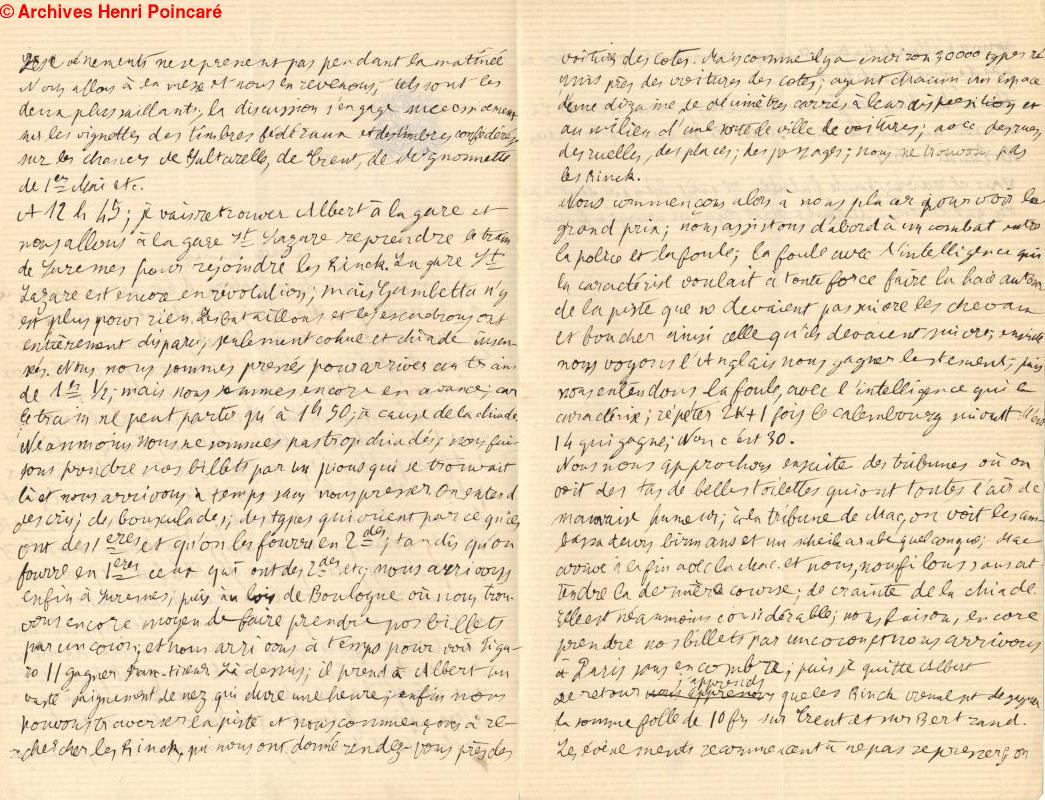 © Archives Henri Poincaré
Les événements ne se pressent pas pendant la matinée
Nous allons à la messe et nous en revenons, tels sont les
deux plus saillants; la discussion s'engage successivement
sur les vignettes des timbres fédéraux et des timbres confédérés,
sur les chances de Saltarelle, de Trent, de Mignonnette
de 1er Mai etc.
A 12 h 45; je vais retrouver Albert à la gare et
nous allons à la gare St Lazare reprendre le train
de Suresnes pour rejoindre les Rinck. La gare St
Lazare est encore en révolution; mais Gambetta n'y
est plus pour rien. Les bataillons et les escadrons ont
entièrement disparu; seulement cohue et chiade insen-
sée. Nous nous sommes pressés pour arriver au train
de 1h ½; mais nous sommes encore en avance; car
le train ne peut partir qu'à 1h 50; à cause de la chiade
Néanmoins nous ne sommes pas trop chiadés; nous fai-
sons prendre nos billets par un pious qui se trouvait
là et nous arrivons à temps sans nous presser. On entend
des cris; des bousculades; des types qui crient parce qu'ils
ont des 1ères et qu'on les fourre en 2des, tandis qu'on
fourre en 1ères ceux qui ont des 2des etc; nous arrivons
enfin à Suresnes; puis au bois de Boulogne où nous trou-
vons encore moyen de faire prendre nos billets
par un cocon; et nous arrivons à temps pour voir Figa-
ro II gagner Là dessus; il prend à Albert un
vaste saignement de nez qui dure une heure; enfin nous
pouvons traverser la piste et nous commençons à re-
chercher les Rinck, qui nous ont donné rendez-vous près des
voitures des cotes. Mais comme il y a environ 30000 types ré-
unis près des voitures des cotes; ayant chacun un espace
d'une dizaine de décimètres carrés à leur disposition et
au milieu d'une sorte de ville de voitures; avec des rues,
des ruelles, des places; des passages; nous ne trouvons pas
les Rinck.
Nous commençons alors à nous placer pour voir le
grand prix; nous assistons d'abord à un combat entre
la police et la foule; la foule avec l'intelligence qui
la caractérise voulait à toute force faire la haie autour
de la piste que ne devaient pas suivre les chevaux
et boucher ainsi celle qu'ils devaient suivre; ensuite
nous voyons l'Anglais nous gagner lestement; puis
nous entendons la foule, avec l'intelligence qui la
caractérise; répéter 2K+1 fois le calembourg suivant
14 qui gagne; Non c'est 30.
Nous nous approchons ensuite des tribunes où on
voit des tas de belles toilettes qui ont toutes l'air de
mauvaise humeur; à la tribune de Mac, on voit les am-
bassadeurs birmans et un scheik arabe quelconque; Mac
arrive à la fin avec la Mac. et nous, nous filons sans at-
tendre la dernière course; de crainte de la chiade.
Elle est néanmoins considérable; nous faisons encore
prendre nos billets par un cocon et nous arrivons
à Paris sans encombre; puis je quitte Albert
De retour nous apprenons j'apprends que les Rinck viennent de gagner
la somme folle de 10 frs sur Trent et sur Bertrand.
Les événements recommencent à ne pas se presser; on